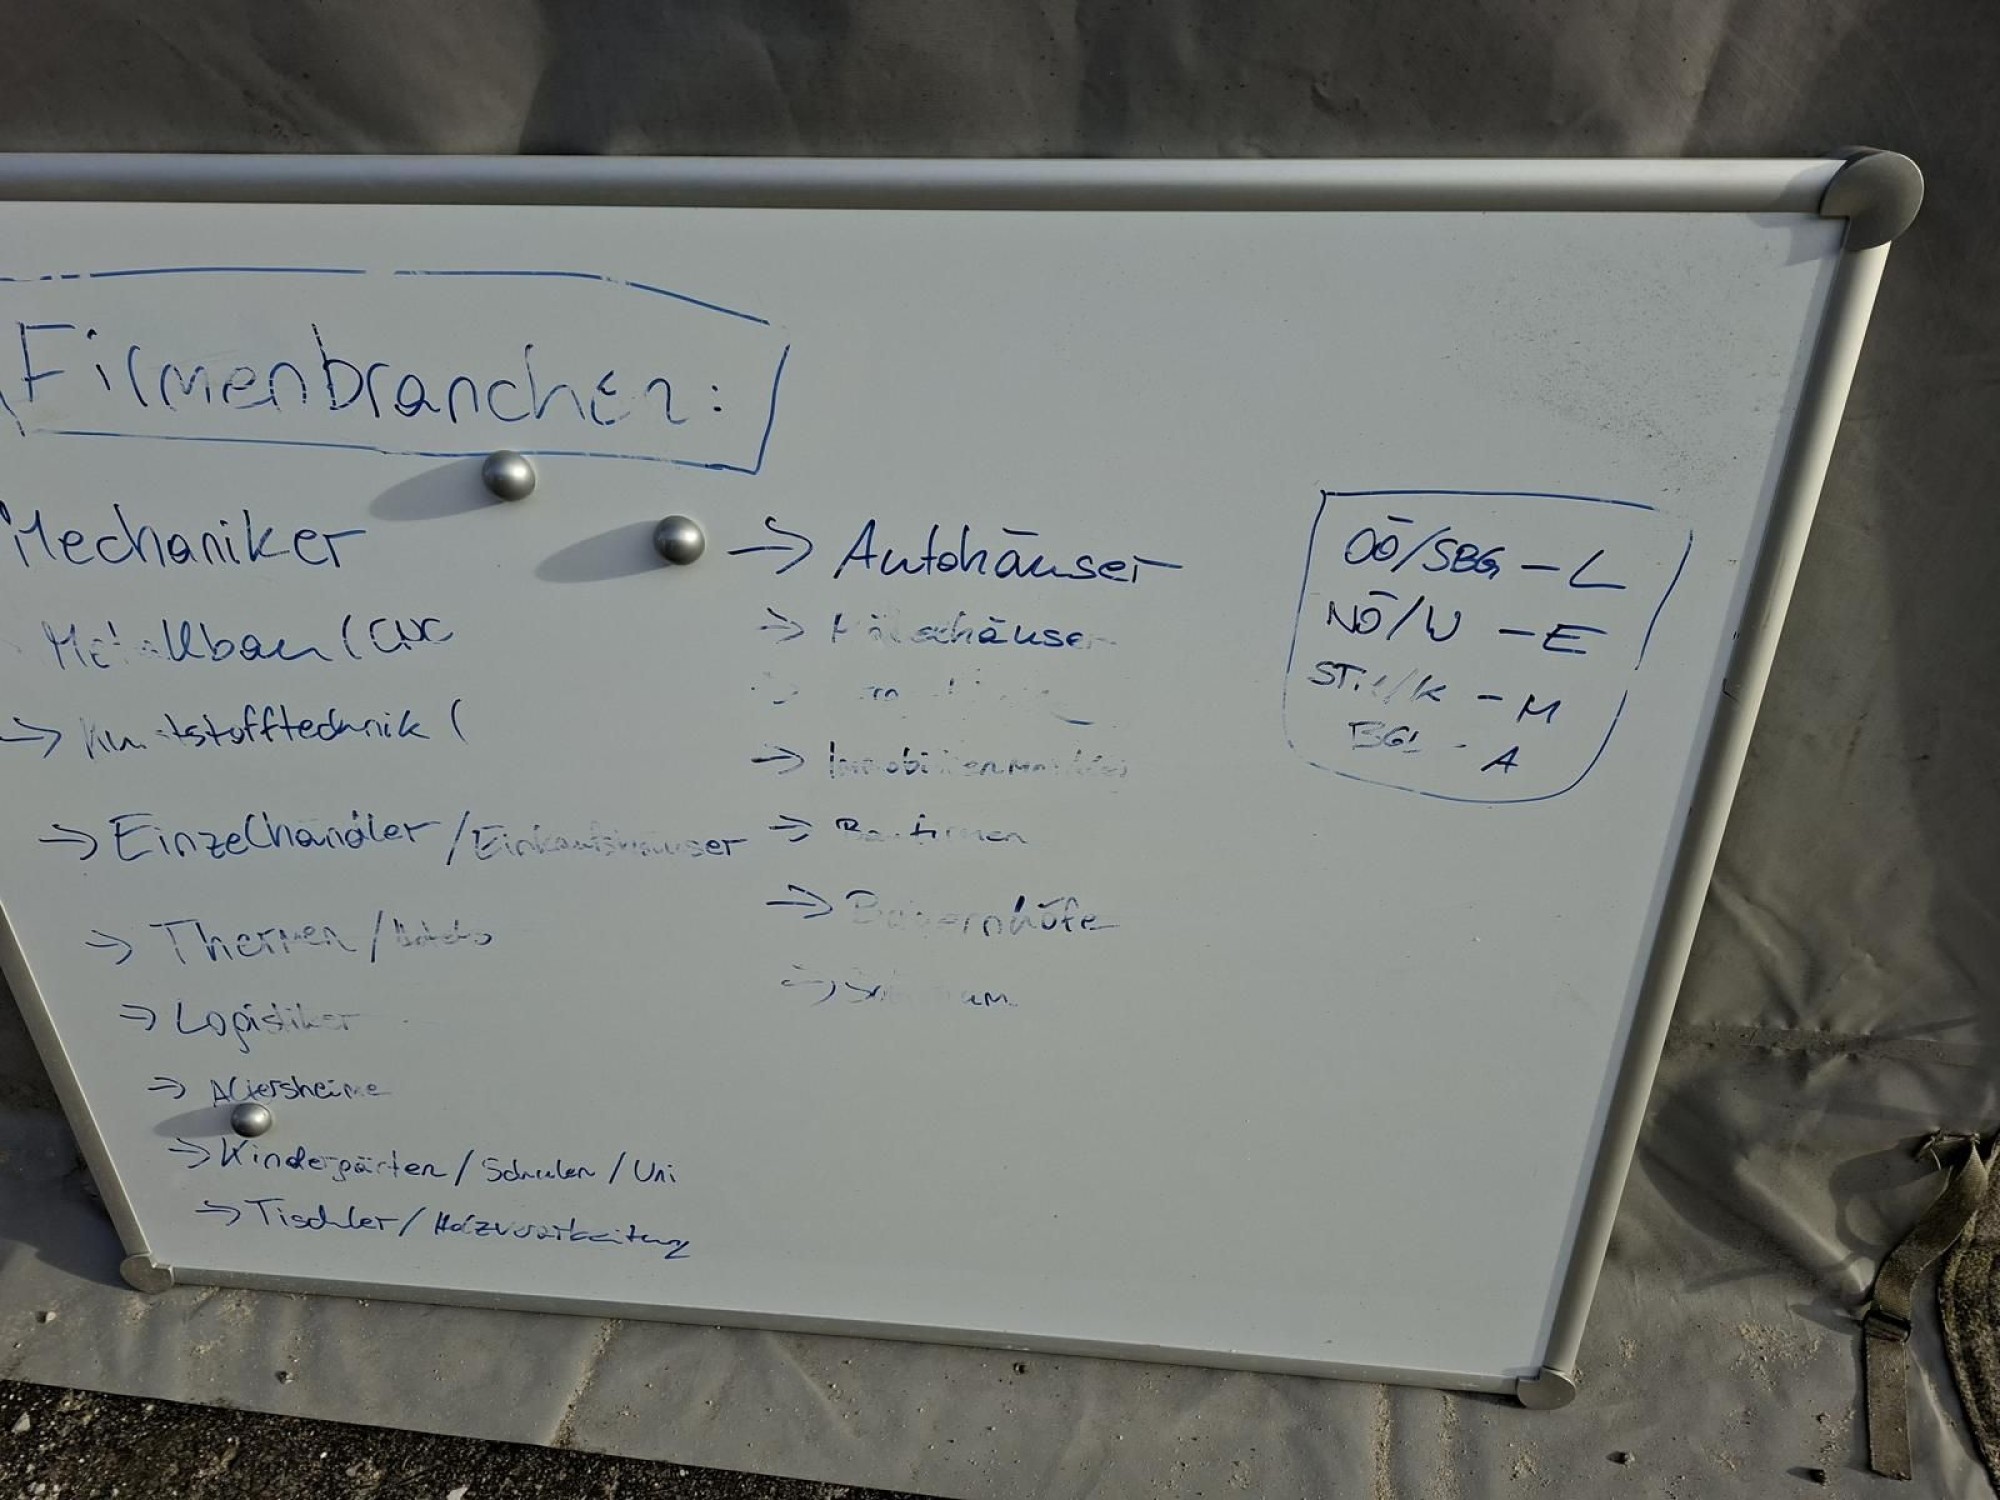 Firmenbranchen:
Mechaniker
Metallbau (CNC
→ Kunststofftechnik (
→ Einzelhändler / Einkaufshäuser
→ Thermen / Hotels
→ Logistiker
→ Altersheime
→ Kindergärten / Schulen / Uni
→ Tischler / Holzverarbeitung
→ Autohäuser
→
→
→ Immobilienmakler
→ Baufirmen
→ Bauernhöfe
→
OÖ/SBG – L
NÖ/W – E
STMK/K – M
BGL - A